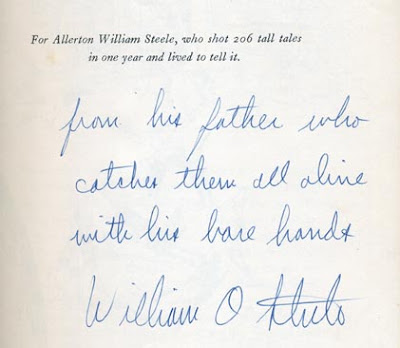 For Allerton William Steele, who shot 206 tall tales
in one year and lived to tell it.
from his father who
catches them all alive
with his bare hands
William O Steele